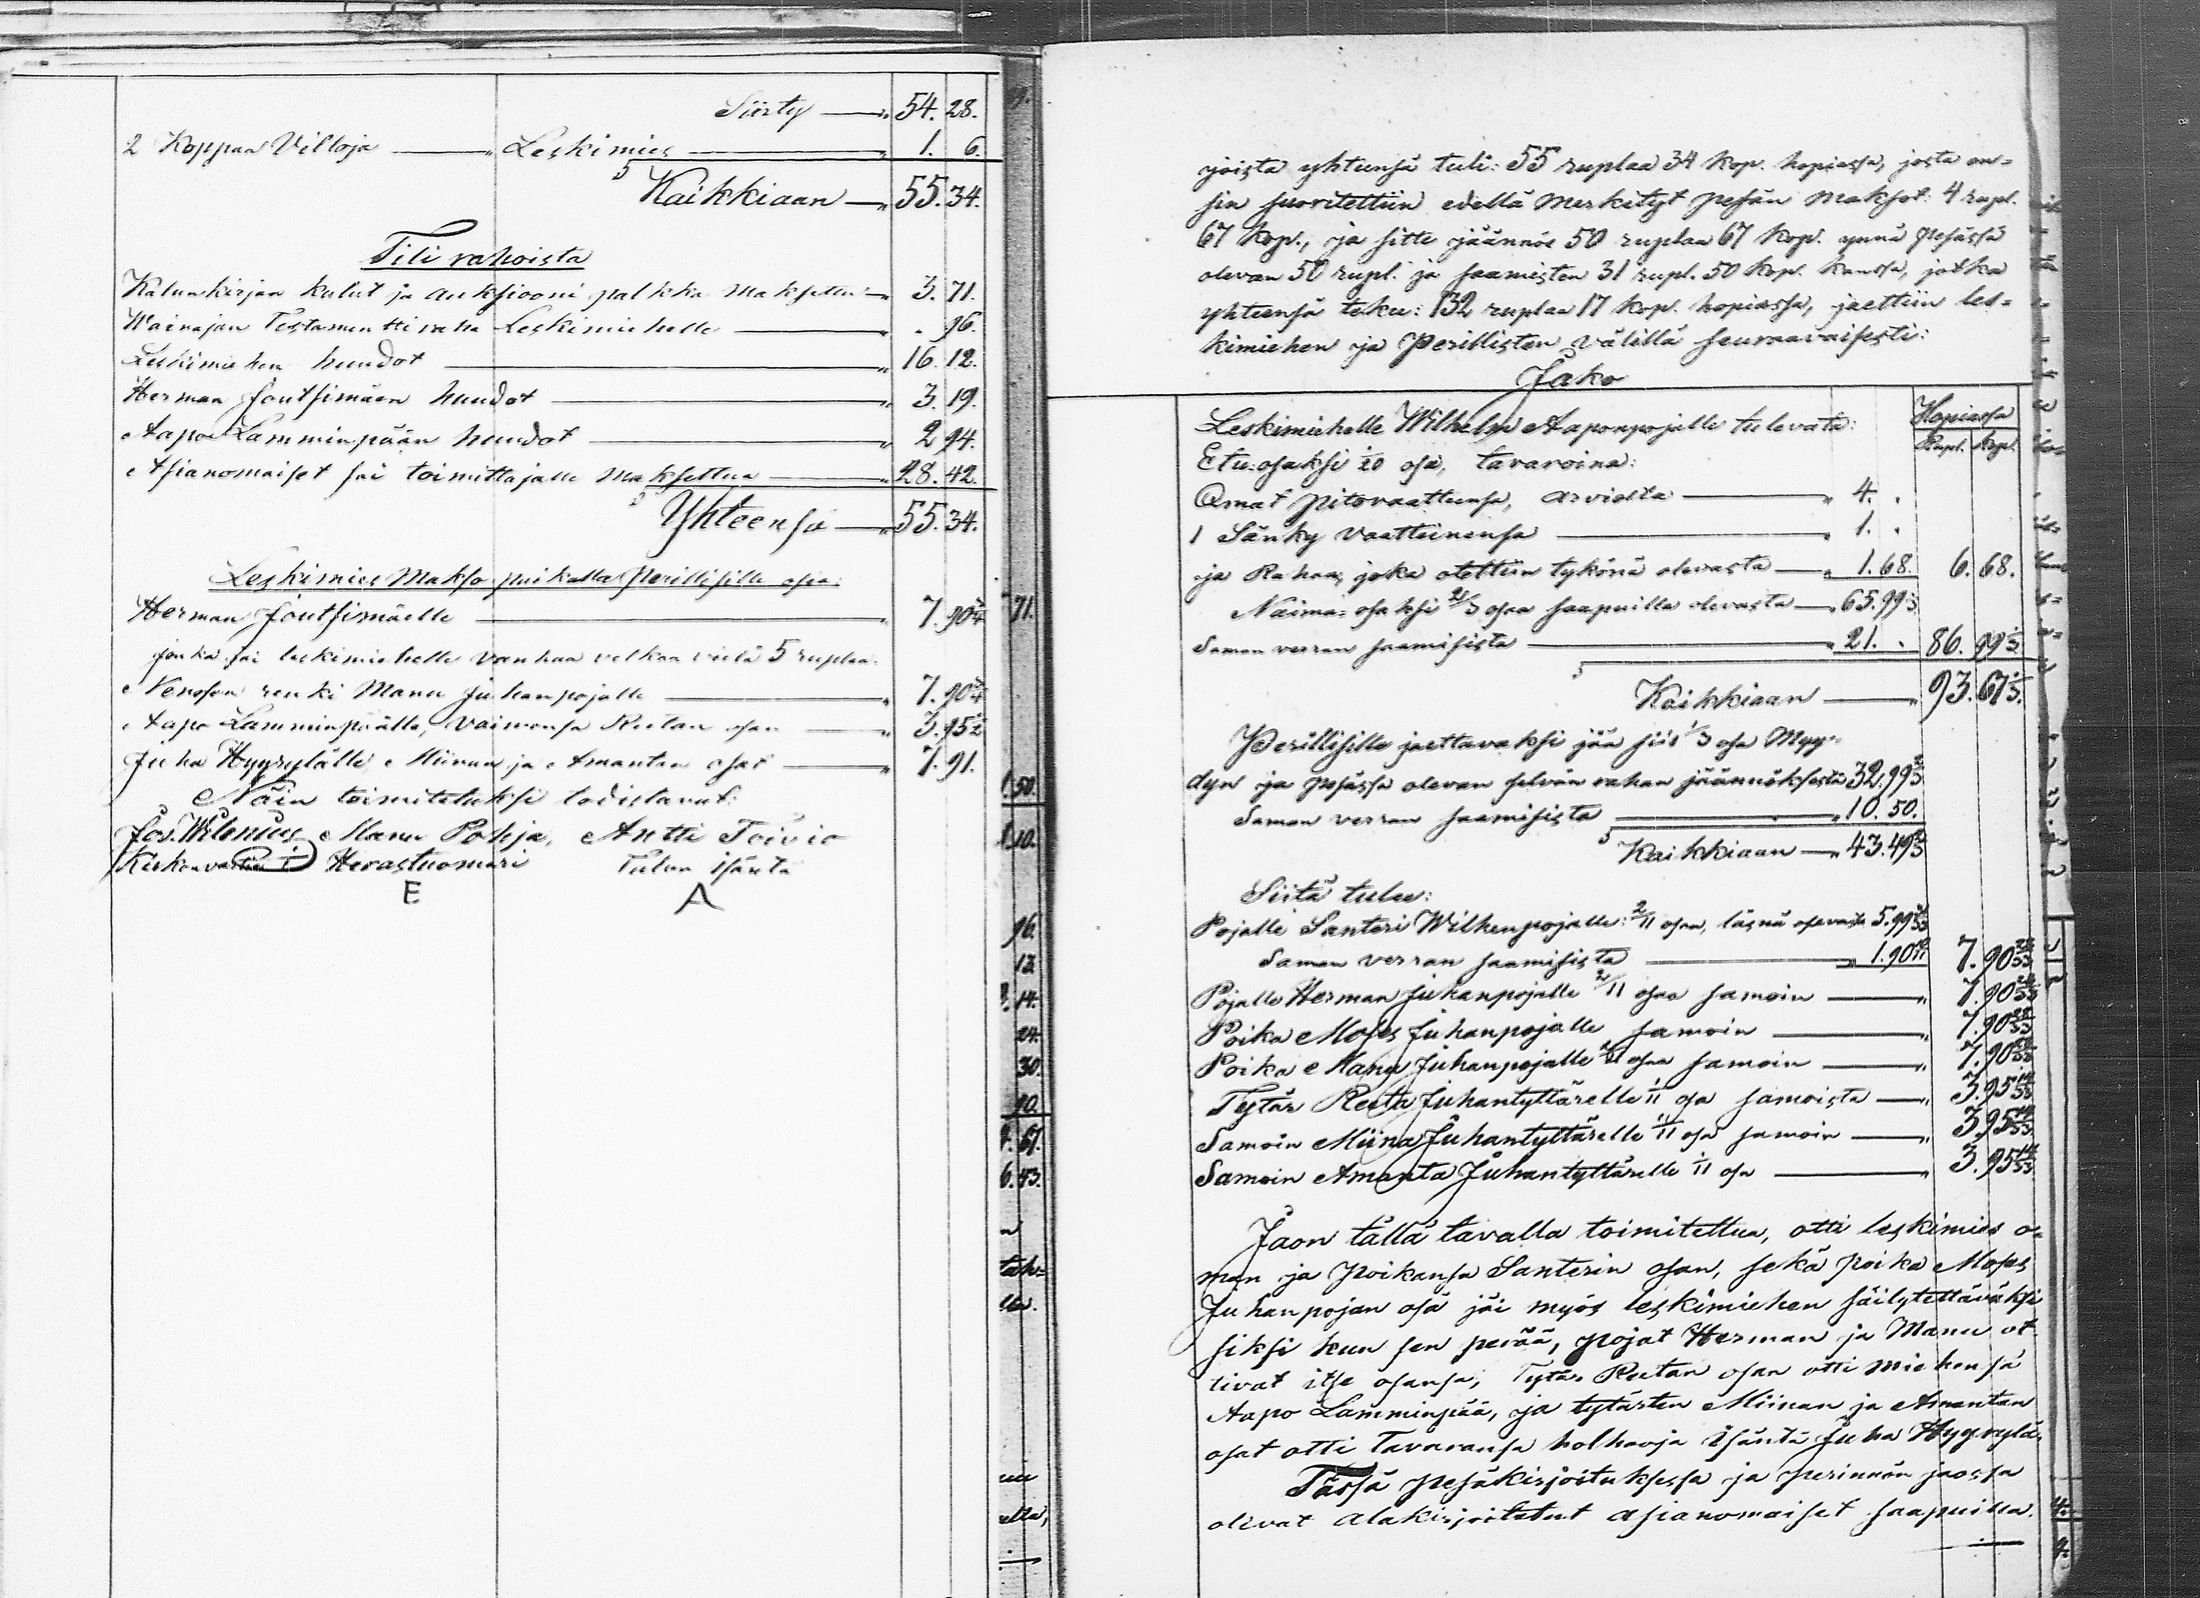 Siirty — „ 54. 28.
2 Koppaa Villoja — „ Leskimies — „ 1. 6.
Kaikkiaan — „ 55. 34.
Tili rahoista
Kalunkirjan kulut ja auksiooni palkka maksettu — 3. 71.
Wainajan Testamentti raha Leskimiehelle — „ . 96.
Leskimiehen huudot — „ 16. 12.
Herman Joutsimäen huudot — „ 3. 19.
Aapo Lamminpään huudot — „ 2 94.
Asianomaiset sai toimittajalle maksettua — 28. 42.
Yhteensä — „ 55. 34.
Leskimies Makso paikalla Perillisille osia:
Herman Joutsimäelle — „ 7. 90 3/4
jonka jäi leskimiehelle vanhaa velkaa vielä 5 ruplaa.
renki Manu Juhanpojalle — „ 7. 90 3/4
Aapo Lamminpäälle, vaimonsa Reetan osan — „ 3. 95 1/2
Juha Hyyrylälle Miinan ja Amantan osat — „ 7. 91.
Näin toimitetuksi todistavat:
Jos. Wilenius Manu Pohja, Antti Toivio
Kirkonvartia Herastuomari Talon isäntä
E A
joista yhteensä tuli: 55 ruplaa 34 kop. hopiassa, josta en=
sin suoritettiin edellä merkityt pesän maksot: 4 rupl.
67 kop., ja sitte jäännös 50 ruplaa 67 kop. ynnä pesässä
olevan 50 rupl. ja saamisten 31 rupl. 50 kop. kanssa, jotka
yhteensä teke: 132 ruplaa 17 kop. hopiassa, jaettiin les=
kimiehen ja Perillisten välillä seuraavaisesti:
Jako
Hopiassa
Leskimiehelle Wilhelm Aaponpojalle tulevata:
Rupl. Kop.
Etu-osaksi 1/20 osa, tavaroina:
Omat pitovaatteensa, arviolta — „ 4. .
1 Sänky vaatteinensa — „ 1. .
ja Rahaa, joka otettiin tykönä olevasta — „ 1. 68. 6. 68.
Naima-osaksi 2/3 osaa saapuilla olevasta — 65. 99 1/3
Saman verran saamisista — „ 21. . 86. 99 1/3
Kaikkiaan — „ 93. 67 1/3.
Perillisille jaettavaksi jää siis 1/3 osa Myy=
dyn ja pesässä olevan selvän rahan jäännöksestä 32. 99 2/3
Saman verran saamisista — „ 10. 50.
Kaikkiaan — „ 43. 49 2/3
Siitä tulee:
Pojalle Santeri Wilhenpojalle: 2/11 osaa, läsnä olevasta 5. 99 31/33
Saman verran saamisista — „ 1. 90 10/11 7. 90 28/33
Pojalle Herman Juhanpojalle 2/11 osaa samoin — „ 7. 90 28/33
Poika Moses Juhanpojalle samoin — „ 7. 90 28/33
Poika Manu Juhanpojalle 2/11 osaa samoin — „ 7. 90 28/33
Tytär Reeta Juhantyttärelle 1/11 osa samoista — „ 3. 95 14/33
Samoin Miina Juhantyttärelle 1/11 osa samoin — „ 3. 95 14/33
Samoin Amanta Juhantyttärelle 1/11 osa — „ 3. 95 14/33
Jaon tällä tavalla toimitettua, otti leskimies o=
man ja poikansa Santerin osan, sekä poika Moses
Juhanpojan osa jäi myös leskimiehen säilytettäväksi
siksi kun sen perää, pojat Herman ja Manu ot
tivat itse osansa, Tytär Reetan osan otti miehensä
Aapo Lamminpää, ja tytärten Miinan ja Amantan
osat otti Tavaransa holhooja isäntä Juha Hyyrylä.
Tässä pesäkirjoituksessa ja perinnön jaossa
olivat alakirjoitetut asianomaiset saapuilla.